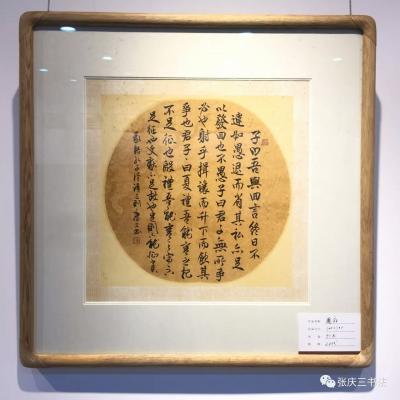 子曰吾與回言終日不
違如愚退而省其私亦足
以發回也不愚子曰君子無所爭
必也射乎揖讓而升下而飲其
爭也君子曰夏禮吾能言之杞
不足征也殷禮吾能言之宋不
足征也文獻不足故也足則吾能征
张庆三书法